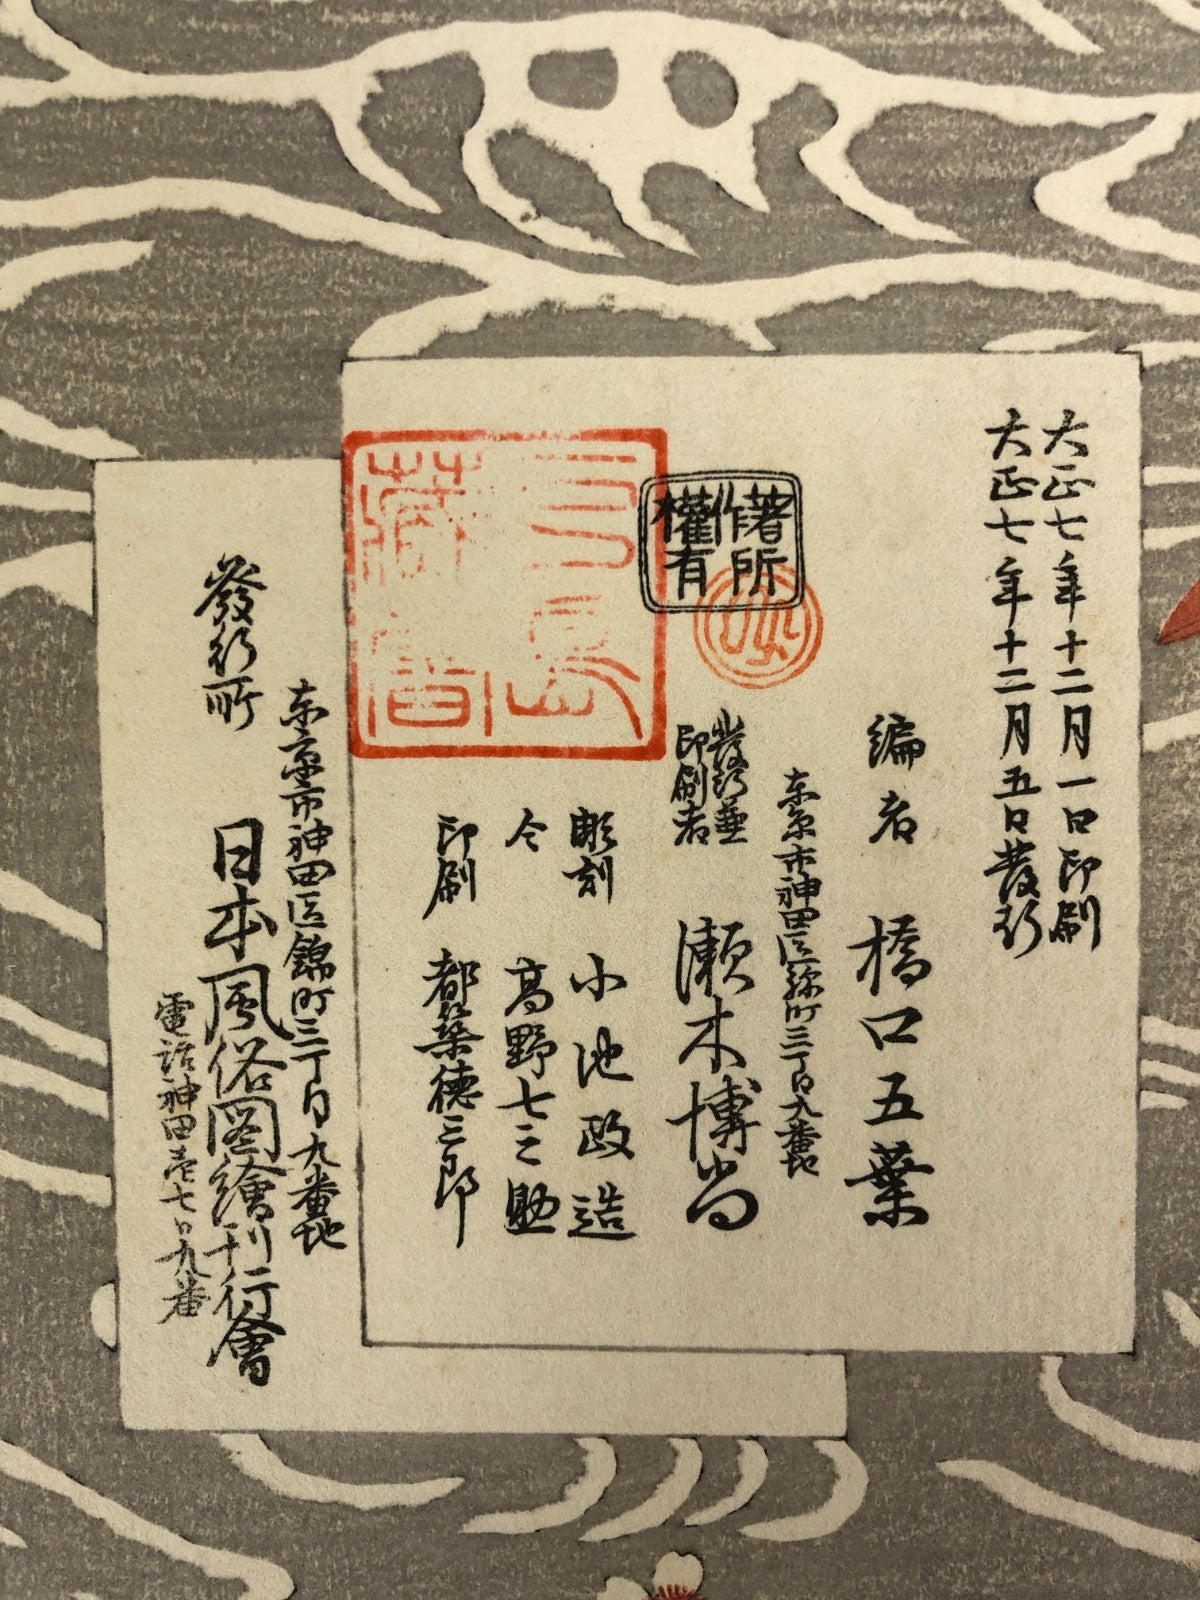 大正七年十二月一日印刷
大正七年十二月五日發行
編者 橋口五葉
東京市神田區錦町三丁目九番地
發行兼
印刷者
瀬木博尚
彫刻 小池政造
仝 高野七之助
印刷 都築德三郎
著作
權所
有
東京市神田區錦町三丁目九番地
發行所 日本風俗圖繪刊行會
電話神田壱七〇九番